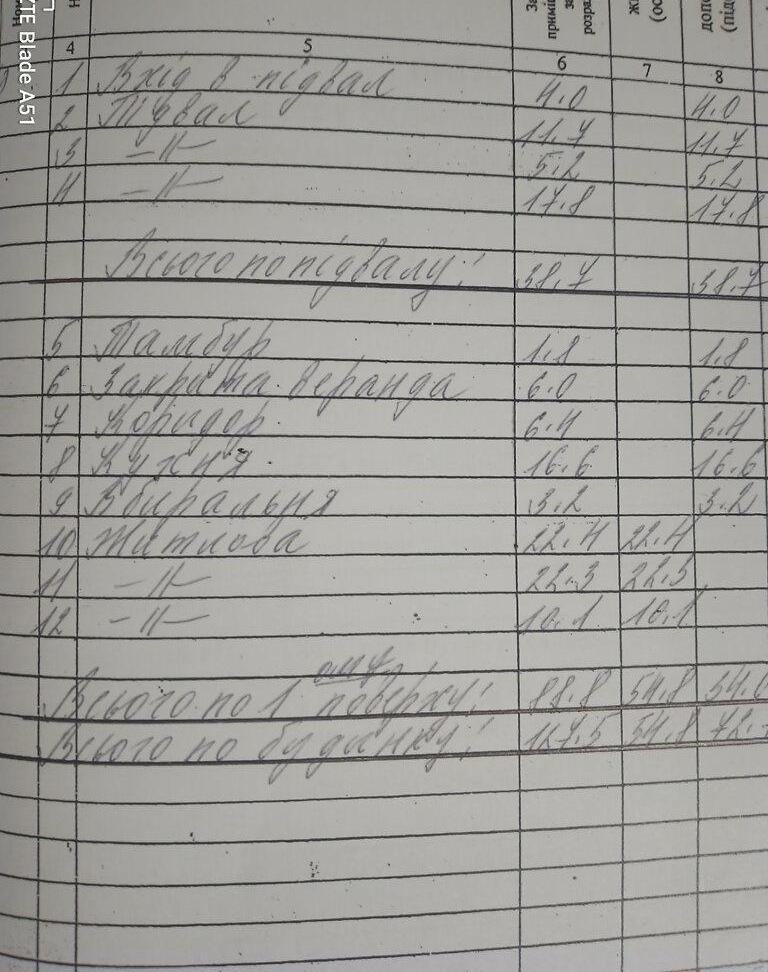 ZTE Blade A51
4 5 6 7 8
1 Вхід в підвал 4.0 4.0
2 Підвал 11.7 11.7
3 -"- 5.2 5.2
4 -"- 17.8 17.8
Всього по підвалу: 38.7 38.7
5 Тамбур 1.8 1.8
6 Закрита веранда 6.0 6.0
7 Коридор 6.4 6.4
8 Кухня 16.6 16.6
9 Вбиральня 3.2 3.2
10 Житлова 22.4 22.4
11 -"- 22.3 22.3
12 -"- 10.1 10.1
Всього по 1 поверху: 88.8 54.8 34.0
Всього по будинку: 127.5 54.8 72.